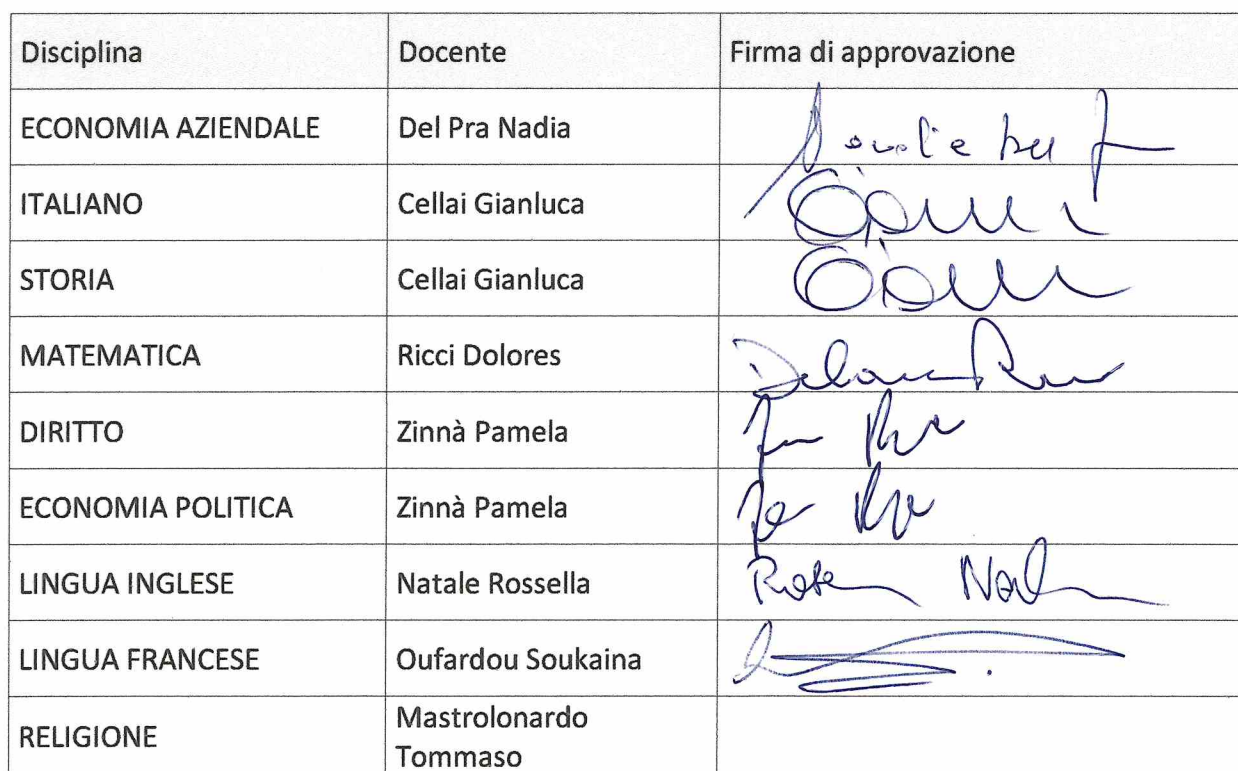 Disciplina Docente Firma di approvazione
ECONOMIA AZIENDALE Del Pra Nadia
ITALIANO Cellai Gianluca
STORIA Cellai Gianluca
MATEMATICA Ricci Dolores
DIRITTO Zinnà Pamela
ECONOMIA POLITICA Zinnà Pamela
LINGUA INGLESE Natale Rossella
LINGUA FRANCESE Oufardou Soukaina
RELIGIONE Mastrolonardo
Tommaso